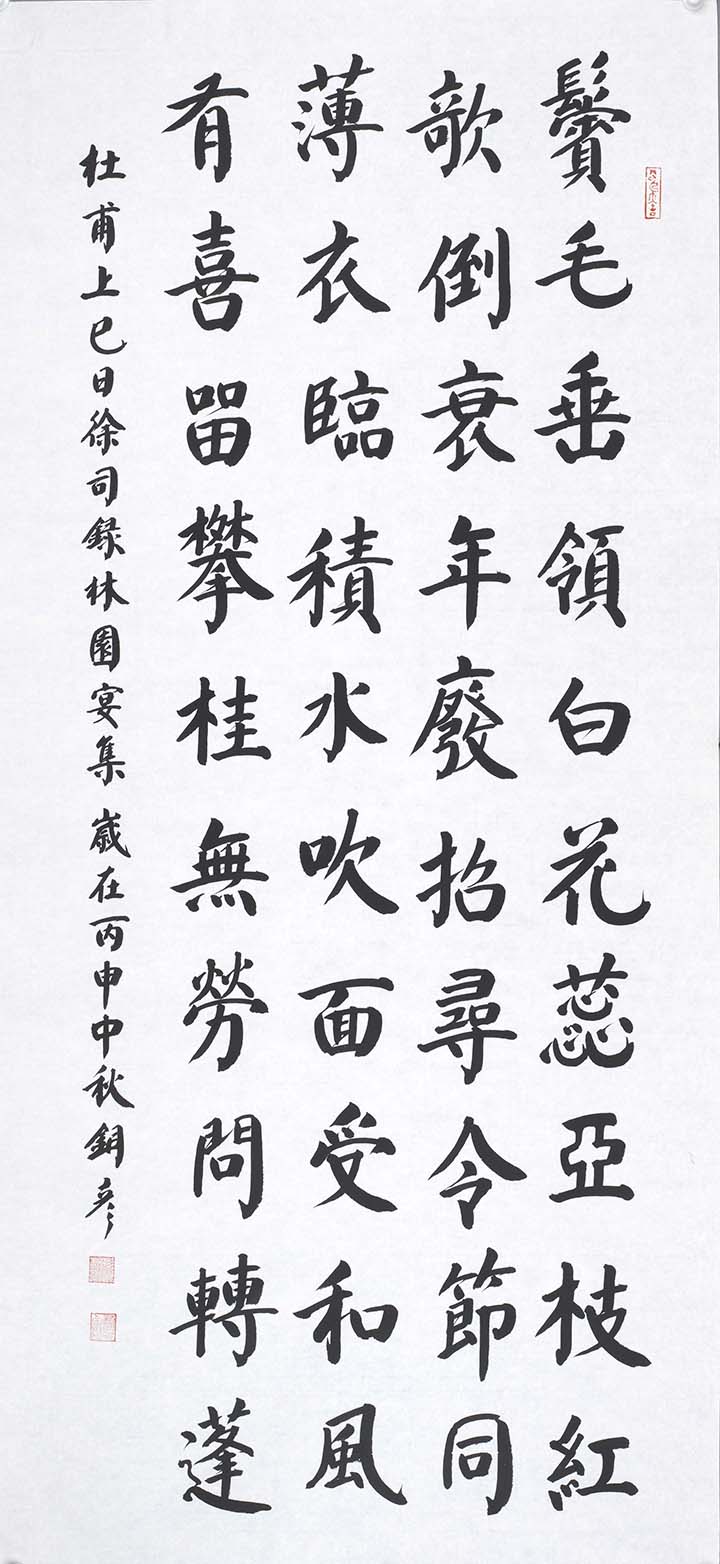 鬢毛垂領白花蕊亞枝紅
欹倒衰年廢招尋令節同
薄衣臨積水吹面受和風
有喜留攀桂無勞問轉蓬
杜甫上巳日徐司録林園宴集 歲在丙申中秋彥